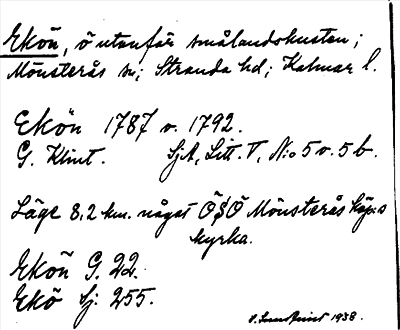 Ekön, ö utanför smålandskusten;
Mönsterås sn; Stranda hd; Kalmar l.
Ekön 1787 o. 1792.
G. Klint. SjA, Litt. V, N:o 5 o. 5 b.
Läge 8,2 km. något ÖSÖ Mönsterås köp:s
kyrka.
Ekön G. 22.
Ekö Sj: 255.
1938.